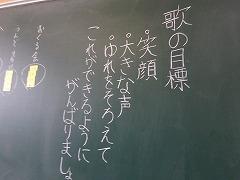 歌の目標
・笑顔
・大きな声
・ゆれをそろえて
これができるように
がんばりましょ